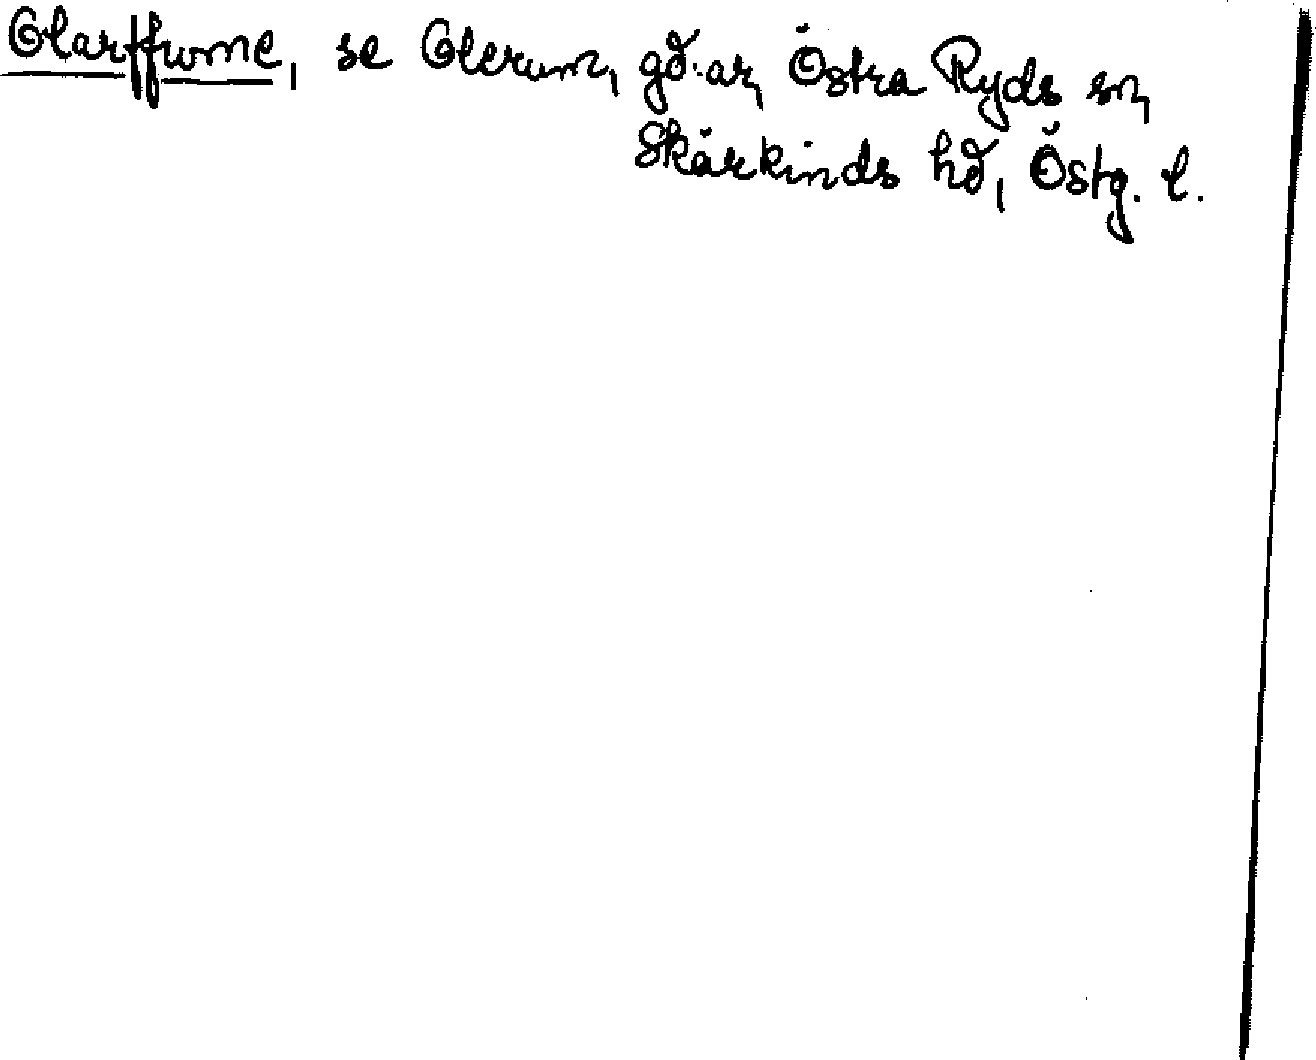 Olarffwme, se Olerum, gd.ar, Östra Ryds sn,
Skärkinds hd, Östg. l.